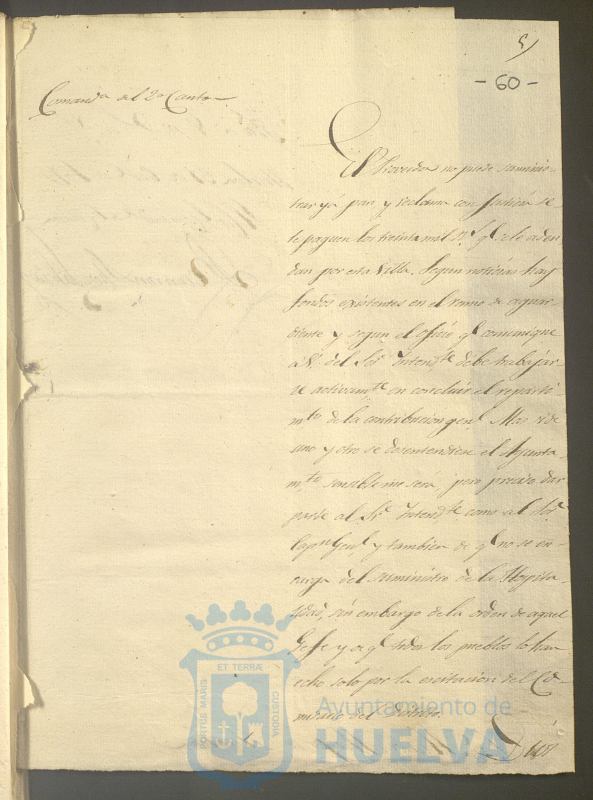 5)
- 60 -
Comanda del 2º Canton
El Proveedor no puede suminis-
trar ya pan y reclama con Justicia se
le paguen los treinta mil r.s q.e se le adeu
dan por esta Villa. Segun noticias hay
fondos existentes en el ramo de aguar
diente y segun el oficio q.e comuniqué
á V. del Sor. Intend.te debe trabajar
se activam.te en concluir el reparti
m.to de la contribucion gen.l Mas si de
uno y otro se desentendiese el Ayunta
m.to, sensible me sera, pero preciso dar
parte al Sr. Intend.te como al Sor.
Capn. Genl. y tambien de q.e no se en
carga del suministro de la Hospita
lidad, sin embargo de la orden de aquel
Gefe y de q.e todos los pueblos lo han
echo solo por la excitacion del Co
misario del Distrito.
Dios
PORTUS MARIS
ET TERRÆ
CUSTODIA
Ayuntamiento de
HUELVA